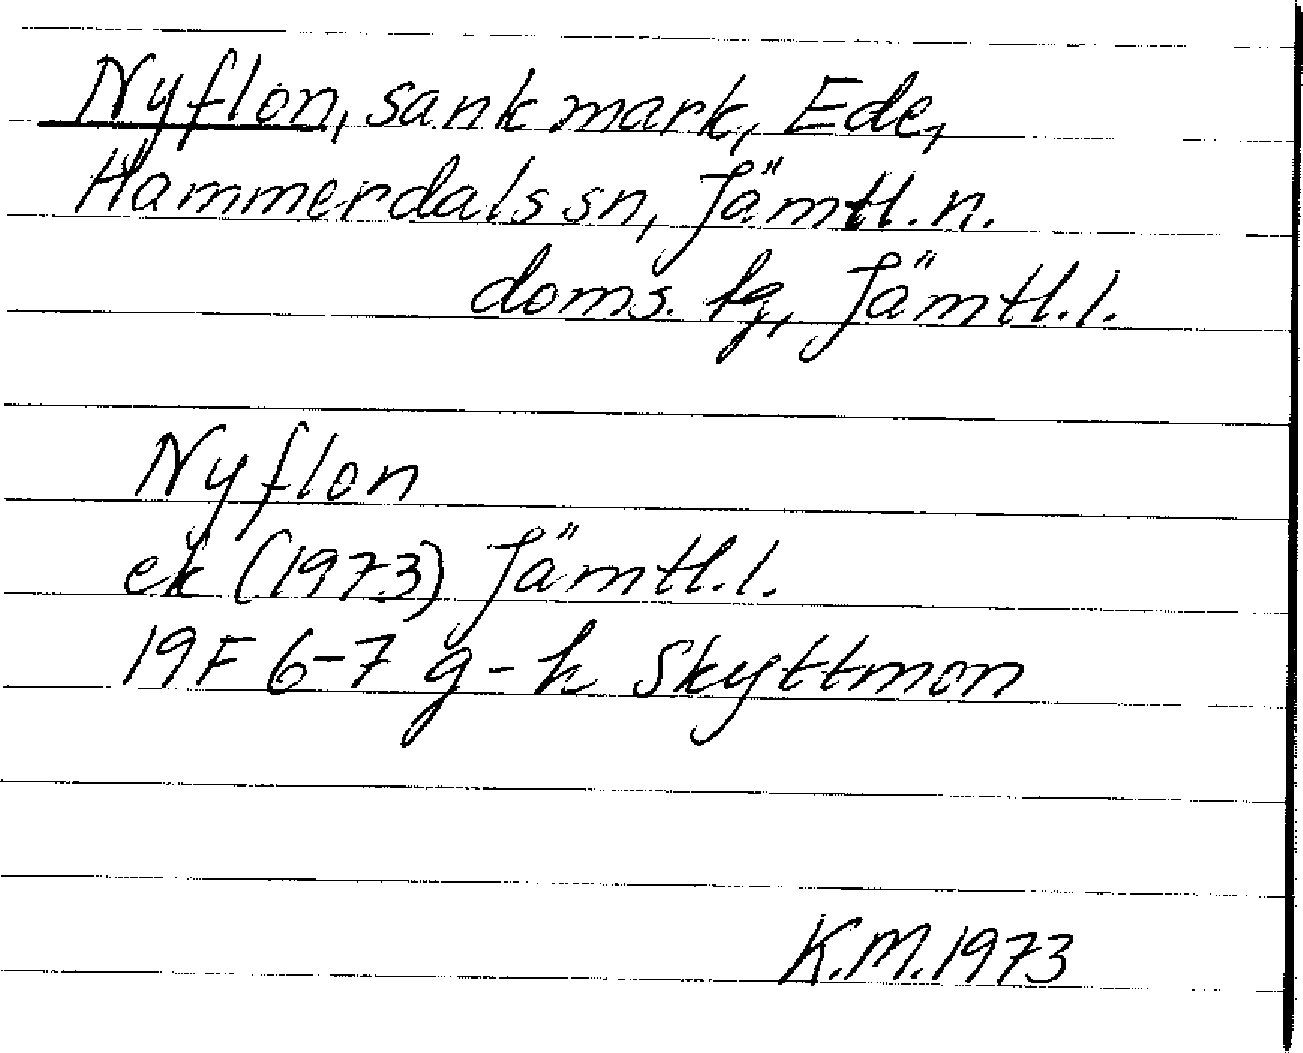 Nyflon, sank mark, Ede,
Hammerdals sn, Jämtl. n.
doms. fg, Jämtl. l.
Nyflon
ek (1973) Jämtl. l.
19F 6-7 g-h Skyttmon
K.M. 1973